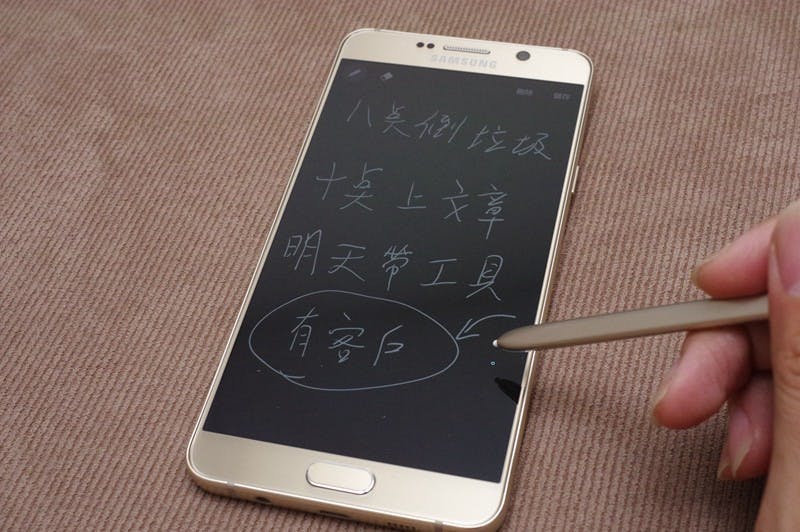 SAMSUNG
刪除 儲存
八点倒垃圾
十点上文章
明天帶工具
有客户